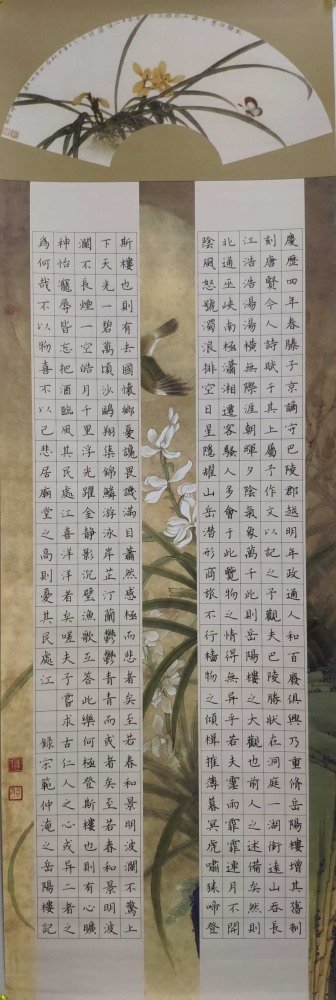 慶歷四年春滕子京謫守巴陵郡越明年政通人和百廢俱興乃重修岳陽樓增其舊制
刻唐賢今人詩賦于其上屬予作文以記之予觀夫巴陵勝狀在洞庭一湖銜遠山吞長
江浩浩湯湯橫無際涯朝暉夕陰氣象萬千此則岳陽樓之大觀也前人之述備矣然則
北通巫峽南極瀟湘遷客騷人多會于此覽物之情得無異乎若夫霪雨霏霏連月不開
陰風怒號濁浪排空日星隱耀山岳潛形商旅不行檣物之傾楫摧薄暮冥虎嘯猿啼登
斯樓也則有去國懷鄉憂讒畏譏滿目蕭然感極而悲者矣至若春和景明波瀾不驚上
下天光一碧萬頃沙鷗翔集錦鱗游泳岸芷汀蘭鬱鬱青青而或者矣至若春和景明波
瀾不長煙一空皓月千里浮光躍金靜影沉璧漁歌互答此樂何極登斯樓也則有心曠
神怡寵辱皆忘把酒臨風其民處江喜洋洋者矣嗟夫予嘗求古仁人之心或異二者之
為何哉不以物喜不以己悲居廟堂之高則憂其民處江 錄宗範仲淹之岳陽樓記